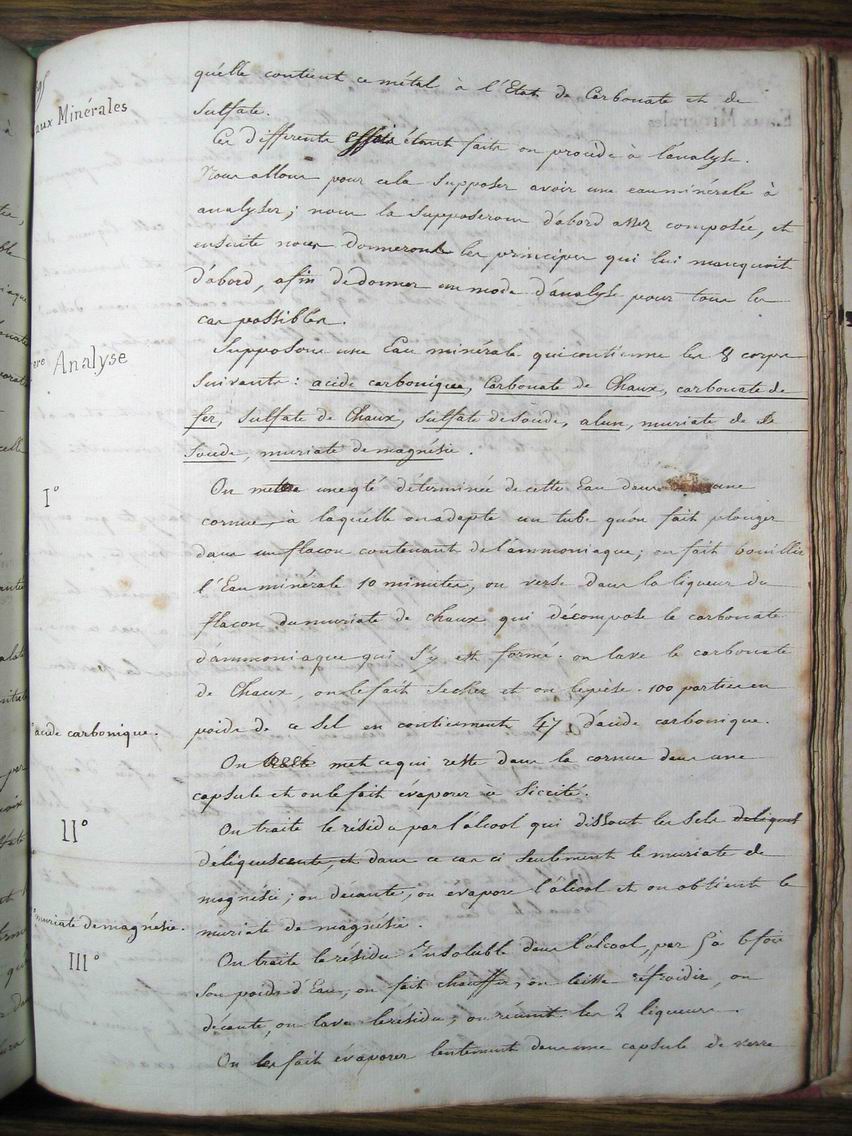 Eaux Minérales
qu'elle contient ce métal à l'Etat de Carbonate et de
Sulfate.
Ces différents essais étant faits on procède à l'analyse.
Nous allons pour cela supposer avoir une eau minérale à
analyser; nous la supposerons d'abord assez composée, et
ensuite nous donnerons les principes qui lui manquoit
d'abord, afin de donner un mode d'analyse pour tous les
cas possibles.
1ere Analyse
Supposons une Eau minérale qui contienne les 8 corps
suivants: acide carbonique, Carbonate de Chaux, carbonate de
fer, Sulfate de Chaux, sulfate de Soude, alun, muriate de
Soude, muriate de magnésie.
I°
On met une qté déterminée de cette Eau dans une
cornue, à laquelle on adapte un tube qu'on fait plonger
dans un flacon contenant de l'ammoniaque; on fait bouillir
l'Eau minérale 10 minutes, on verse dans la liqueur du
flacon du muriate de chaux qui décompose le carbonate
d'ammoniaque qui s'y est formé. on lave le carbonate
de Chaux, on le fait secher et on le pèse. 100 parties en
acide carbonique.
poids de ce sel en contiennent 47 d'acide carbonique.
On met ce qui reste dans la cornue dans une
capsule et on le fait évaporer à siccité.
II°
On traite le résidu par l'alcool qui dissout les sels deliques
déliquescents, et dans ce cas ci seulement le muriate de
magnésie; on décante, on evapore l'alcool et on obtient le
muriate de magnésie.
muriate de magnésie.
III°
On traite le résidu insoluble dans l'alcool, par 5 à 6 fois
son poids d'Eau, on fait chauffer, on laisse refroidir, on
décante, on lave le résidu, on réunit les 2 liqueurs.
On les fait évaporer lentement dans une capsule de verre